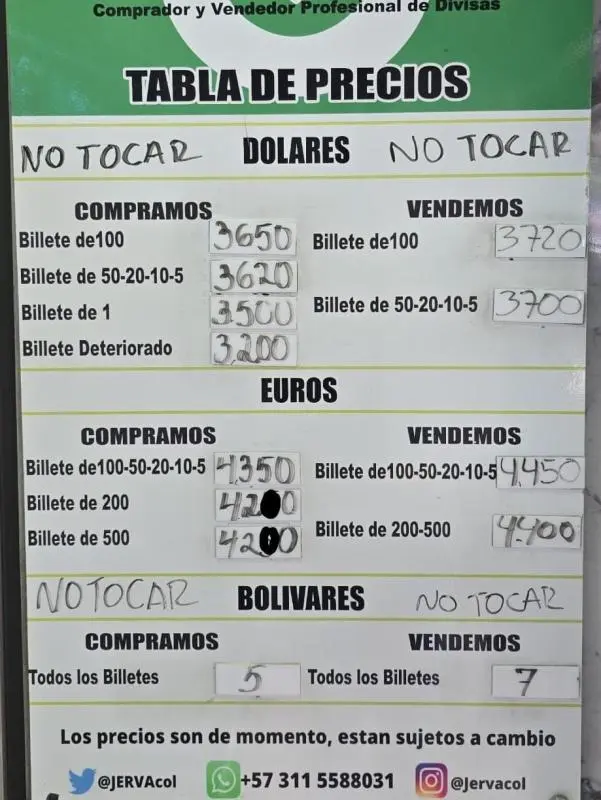 Comprador y Vendedor Profesional de Divisas
TABLA DE PRECIOS
NO TOCAR DOLARES NO TOCAR
COMPRAMOS VENDEMOS
Billete de100 3650 Billete de100 3720
Billete de 50-20-10-5 3620
Billete de 50-20-10-5 3700
Billete de 1 3500
Billete Deteriorado 3.200
EUROS
COMPRAMOS VENDEMOS
Billete de100-50-20-10-5 4.350 Billete de100-50-20-10-5 4.450
Billete de 200 4200
Billete de 500 4200 Billete de 200-500 4.400
NO TOCAR BOLIVARES NO TOCAR
COMPRAMOS VENDEMOS
Todos los Billetes 5 Todos los Billetes 7
Los precios son de momento, estan sujetos a cambio
@JERVAcol +57 311 5588031 @Jervacol